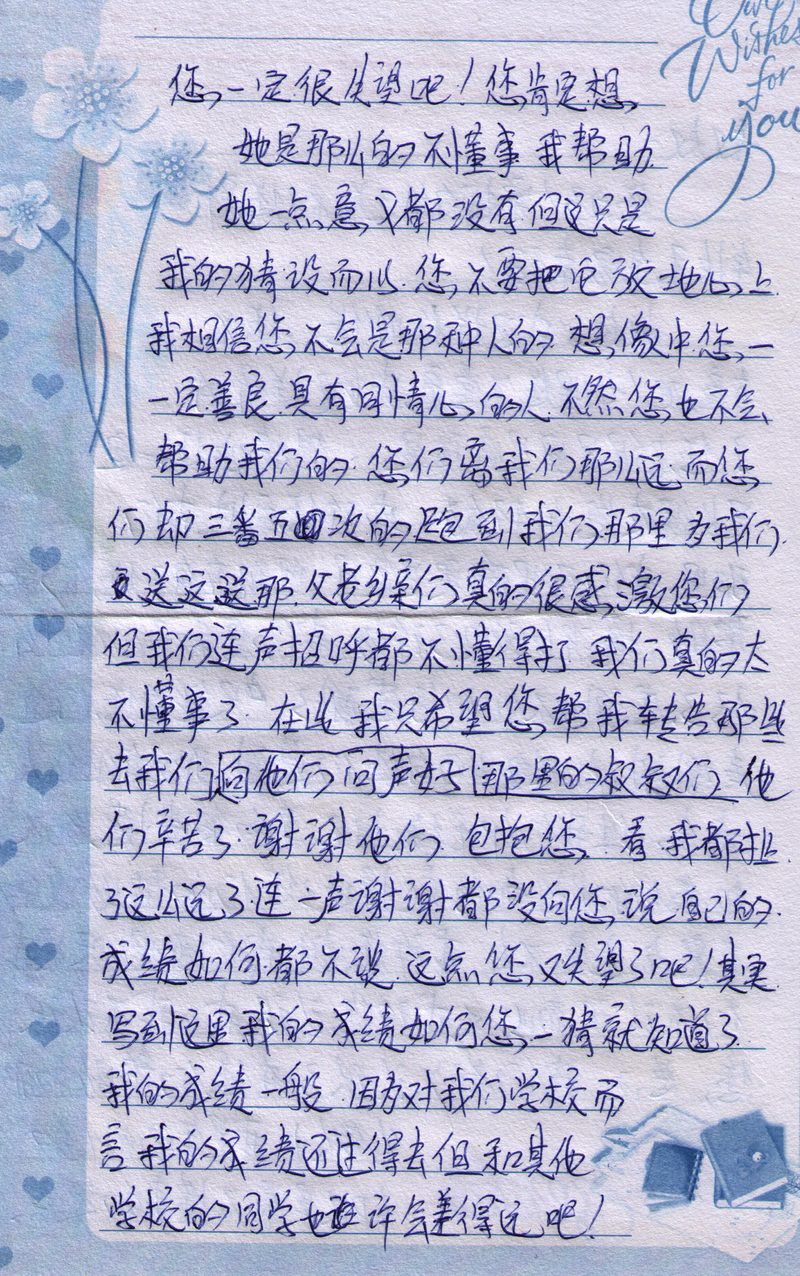 Our
Wishes
for
you
您一定很失望吧！您肯定想
她是那么的不懂事我帮助
她一点意义都没有但这只是
我的猜设而以.您不要把它放在心上
我相信您不会是那种人的.想像中您一
一定.善良.具有同情心的人.不然您也不会
帮助我们的.您们离我们那么远.而您
们却三番五次的跑到我们那里为我们
送这送那.父老乡亲们真的很感激您们
但我们连声招呼都不懂得打我们真的太
不懂事了.在此我只希望您帮我转告那些
去我们向他们问声好那里的叔叔们他
们辛苦了.谢谢他们包括您.看.我都扯
了这么远了连一声谢谢都没向您说自己的
成绩如何.都不说.这点您又失望了吧！其实
写到这里我的成绩如何您一猜就知道了
我的成绩一般.因为对我们学校而
言我的成绩还过得去但和其他
学校的同学也许会差得远吧！